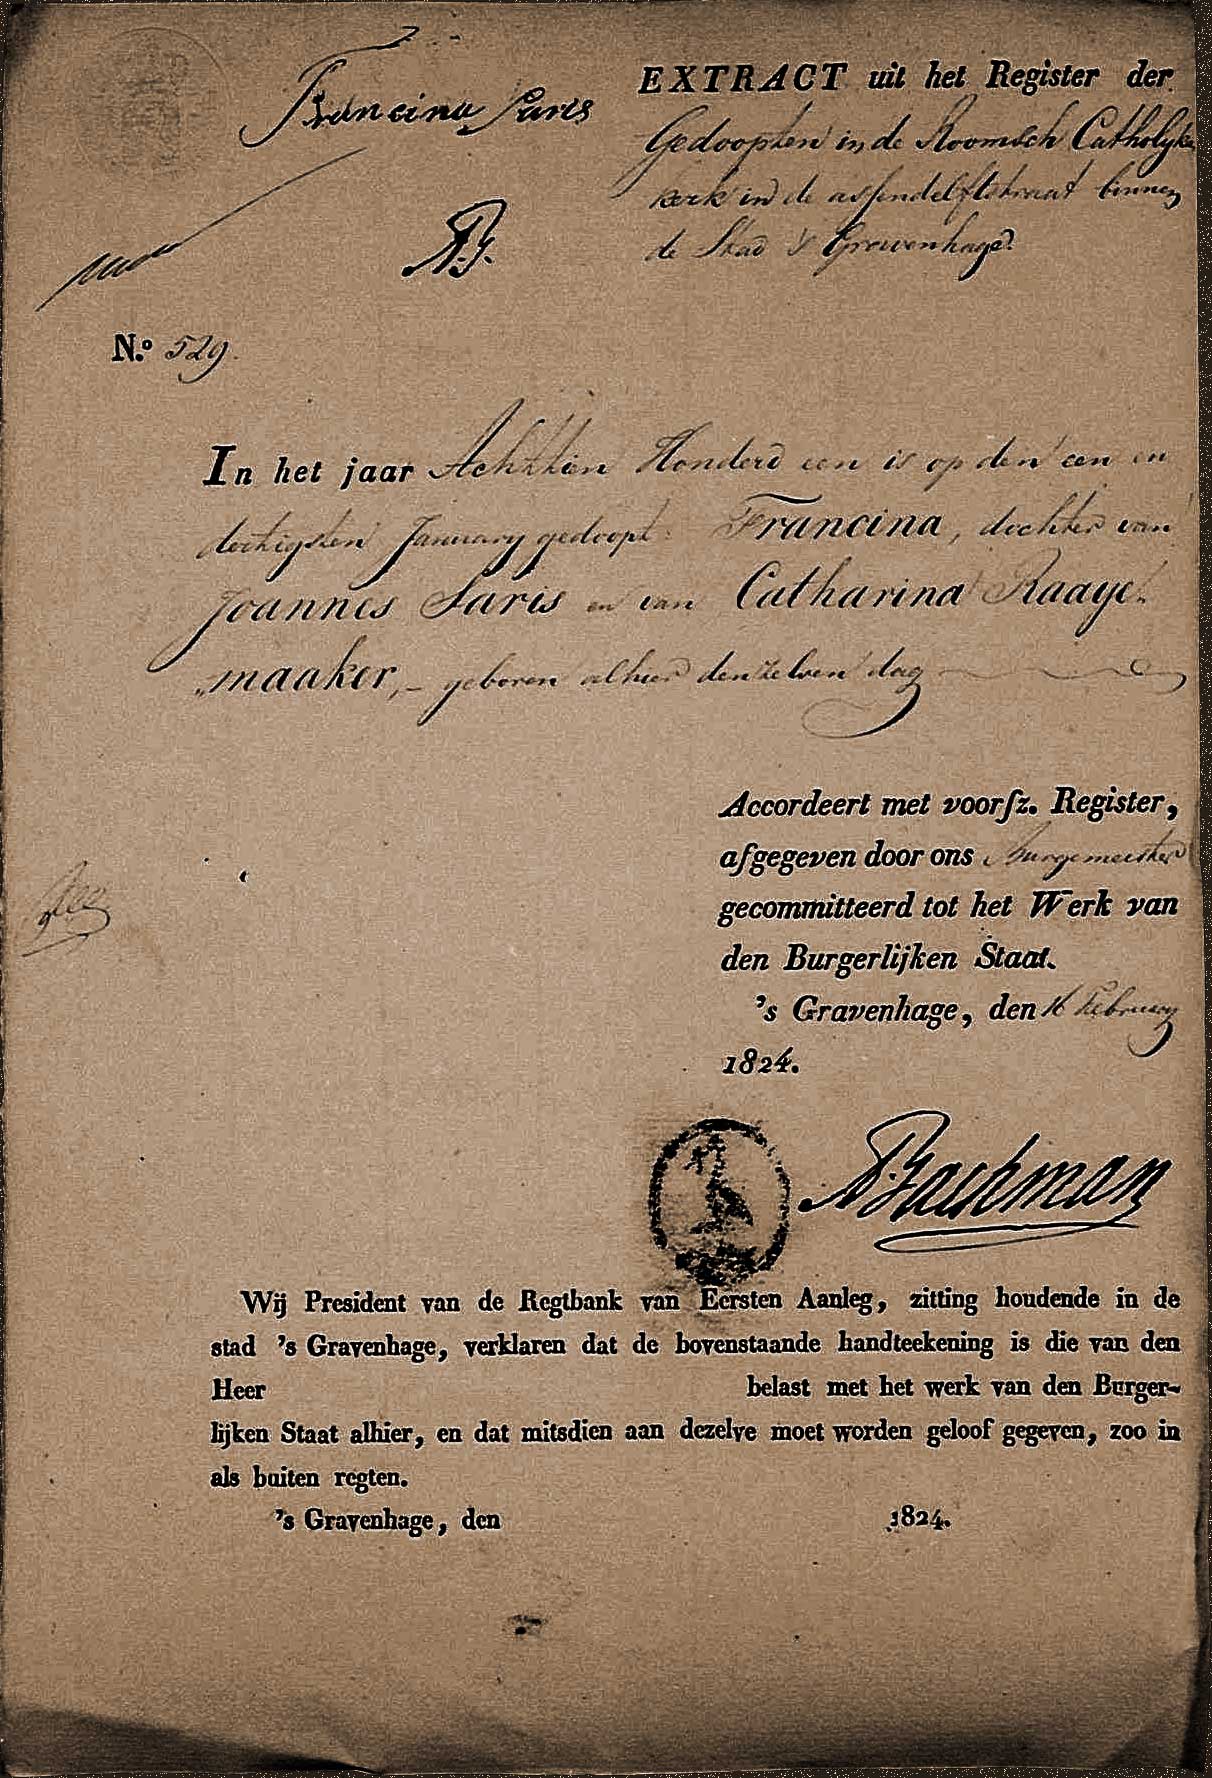 Francina Saris
EXTRACT uit het Register der
Gedoopten in de Roomsch Catholyke
kerk in de assendelftstraat binnen
de Stad 's Gravenhage.
N.º 529.
In het jaar Achttien Honderd een is op den een en
dertigsten January gedoopt: Francina, dochter van
Joannes Saris en van Catharina Raaye-
„maaker, – geboren alhier denzelven dag
Accordeert met voorſz. Register,
afgegeven door ons Burgemeester
gecommitteerd tot het Werk van
den Burgerlijken Staat.
's Gravenhage, den 16 February
1824.
Bachman
Wij President van de Regtbank van Eersten Aanleg, zitting houdende in de
stad 's Gravenhage, verklaren dat de bovenstaande handteekening is die van den
Heer belast met het werk van den Burger-
lijken Staat alhier, en dat mitsdien aan dezelve moet worden geloof gegeven, zoo in
als buiten regten.
's Gravenhage, den 1824.